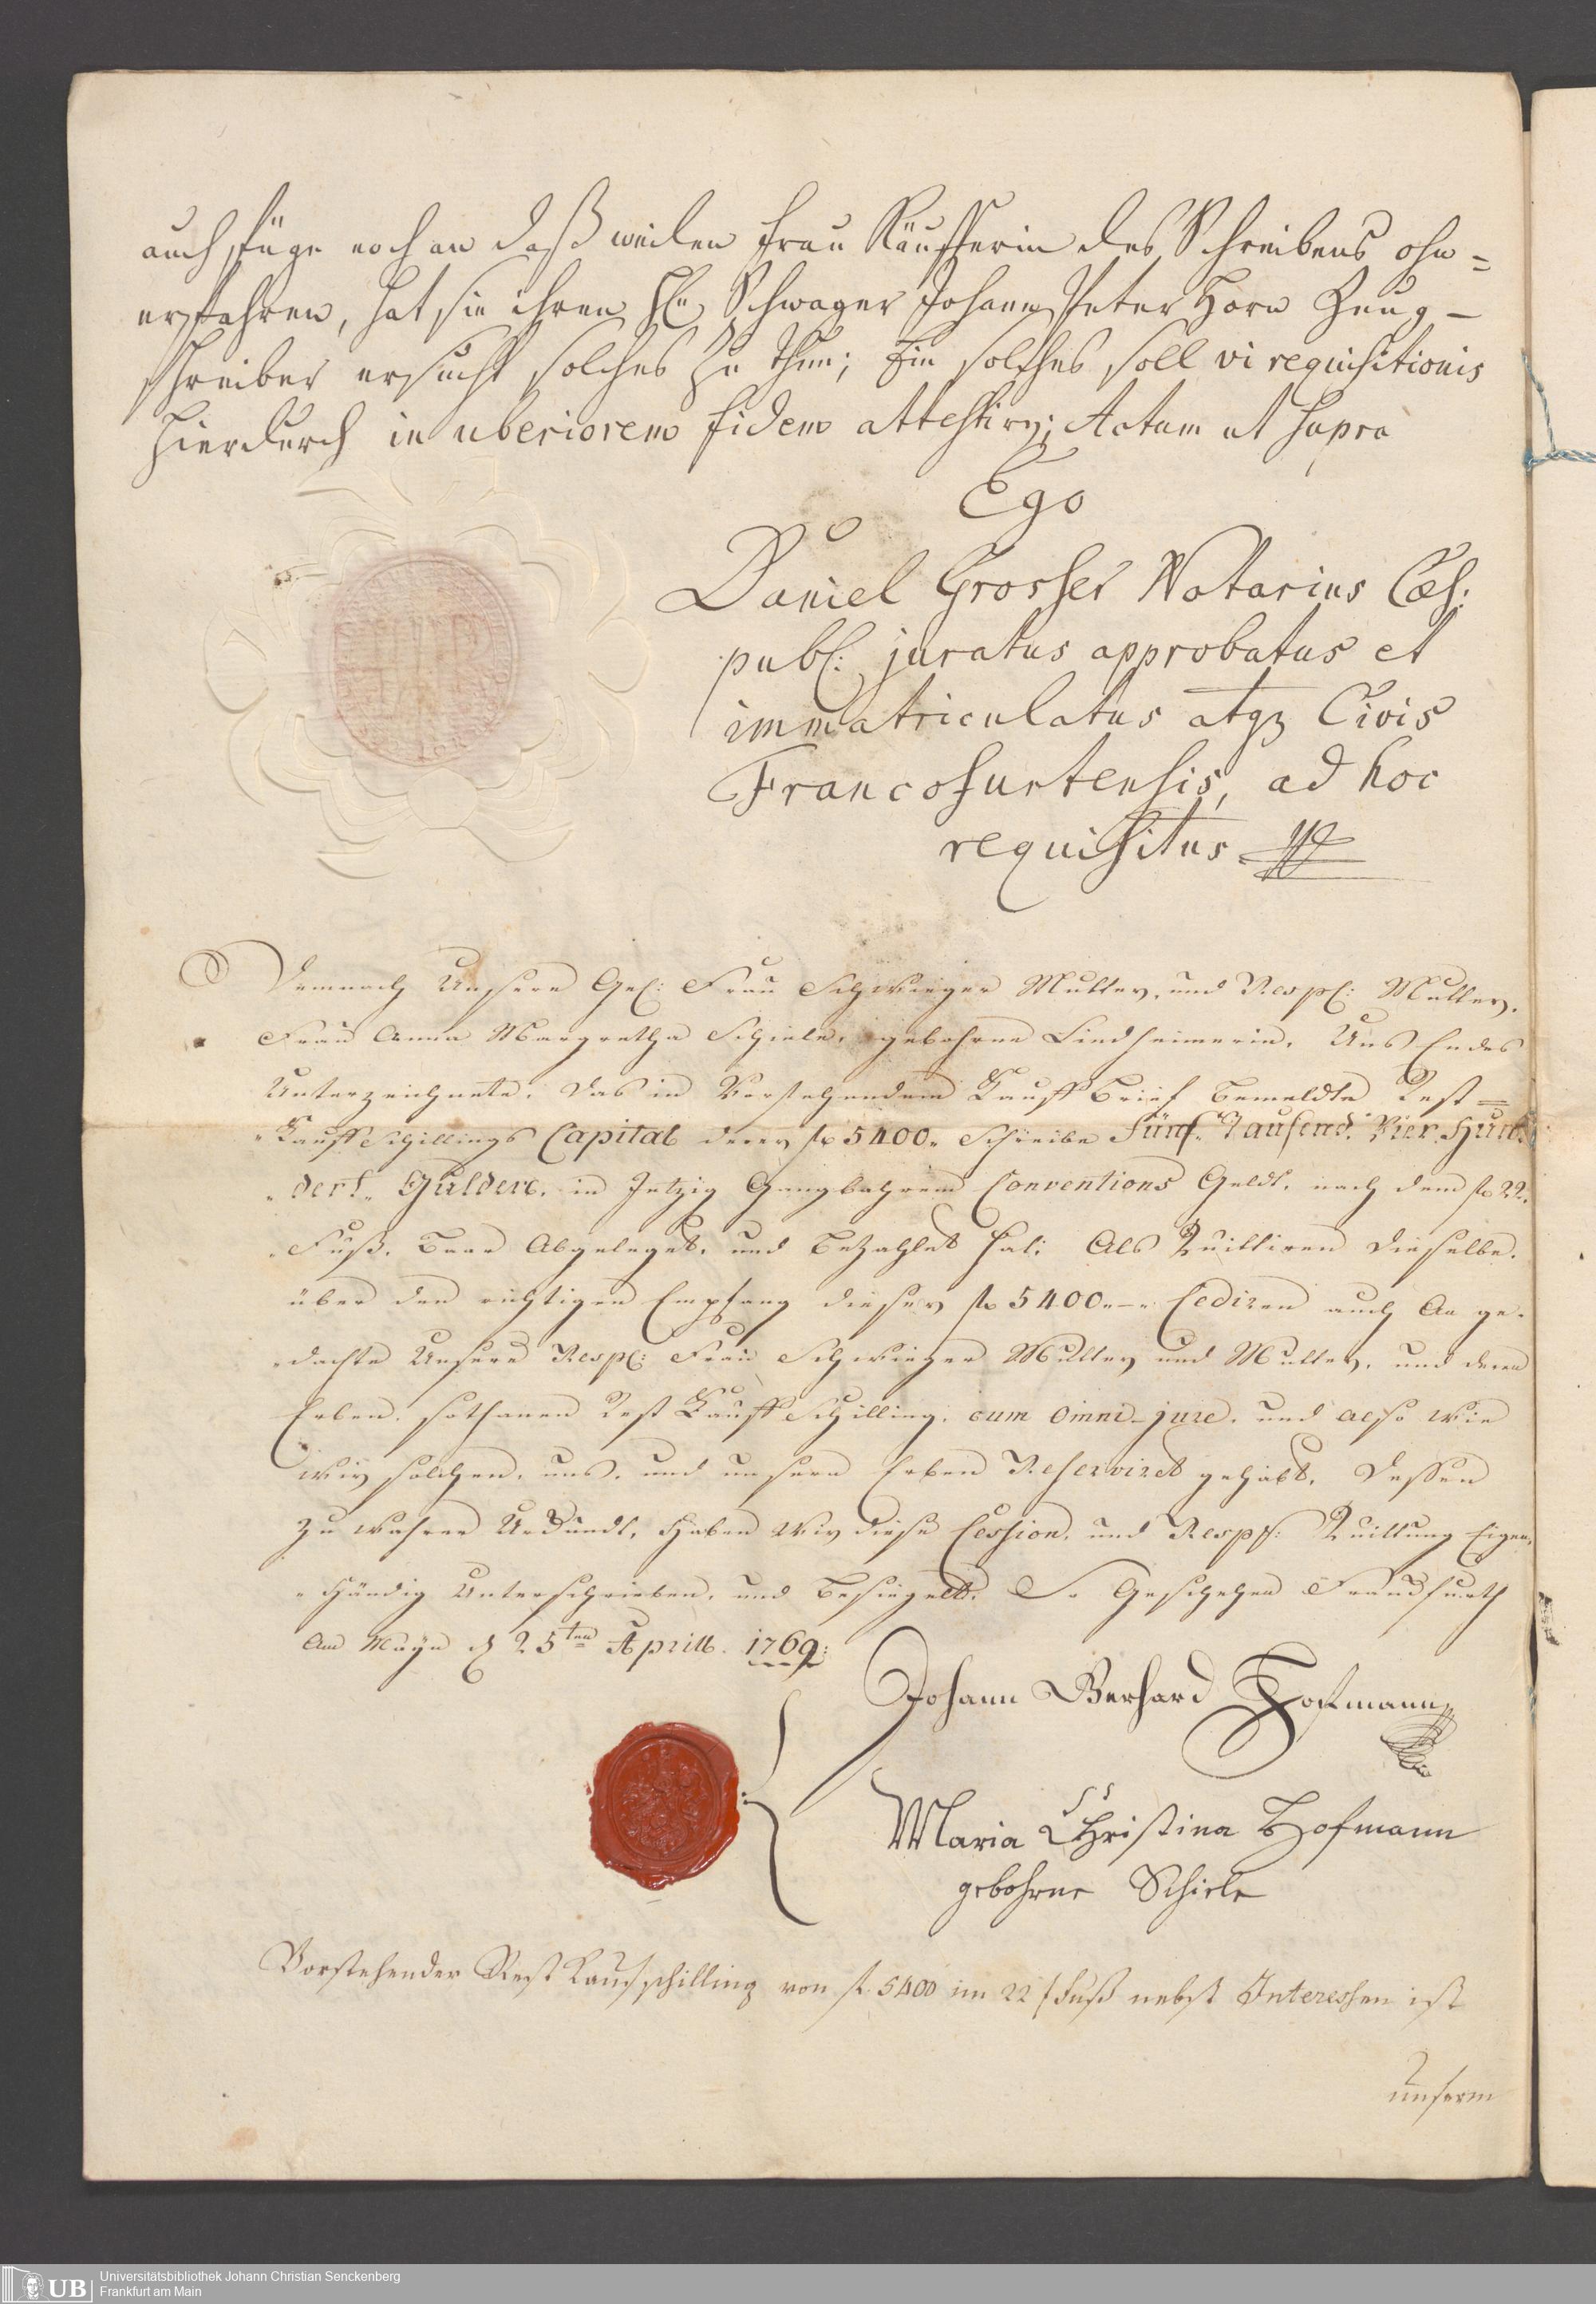 auch füge noch an daß weilen Frau Käufferin des Schreibens ohn=
erfahren, hat sie ihren Hn Schwager Johann Peter Horn Zeug-
schreiber ersucht solches zu thun; Ein solches soll vi requisitionis
hierdurch in uberiorem fidem attestirn; Actum ut supra
Ego
Daniel Grosser Notarius Cæs:
publ: juratus approbatus et
immatriculatus atqz Civis
Francofurtensis, ad hoc
requisitus
Demnach Unsere Gel: Frau Schwieger Mutter, und Respl: Mutter,
Frau Anna Margretha Schiele, gebohrne Lindheimerin, Uns Endes
Unterzeichnete, das in Vorstehendem Kauff Brief Bemeldte Rest=
Kauff Schillings Capital derer fl 5400. Schreibe Fünf Tausend, Vier Hun-
dert Gulden, in Jetzig Gangbahrem Conventions Geldt, nach dem fl 22.
Fuß, Baar Abgeleget, und Bezahlet hat; Als Quittiren dieselbe,
über den richtigen Empfang dieser fl 5400.-. Cediren auch An ge-
dachte Unsere Respl: Frau Schwieger Mutter und Mutter, und deren
Erben, sothanen Rest Kauff Schilling, cum omni jure, und also wie
wir solchen, uns, und unsern Erben Reserviret gehabt, Dessen
zu wahrer Urkundt, Haben Wir diese Cession, und Respl: Quittung Eigen-
Händig Unterschrieben, und Besiegelt. So Geschehen Franckfurth
Am Mayn d 25ten Aprill. 1769:
Johann Gerhard Hofmann
Maria Christina Hofmann
gebohrne Schiele
Vorstehender Rest Kaufschilling von fl. 5400 im 22 f Fuß nebst Interessen ist
unserm
UB
Universitätsbibliothek Johann Christian Senckenberg
Frankfurt am Main